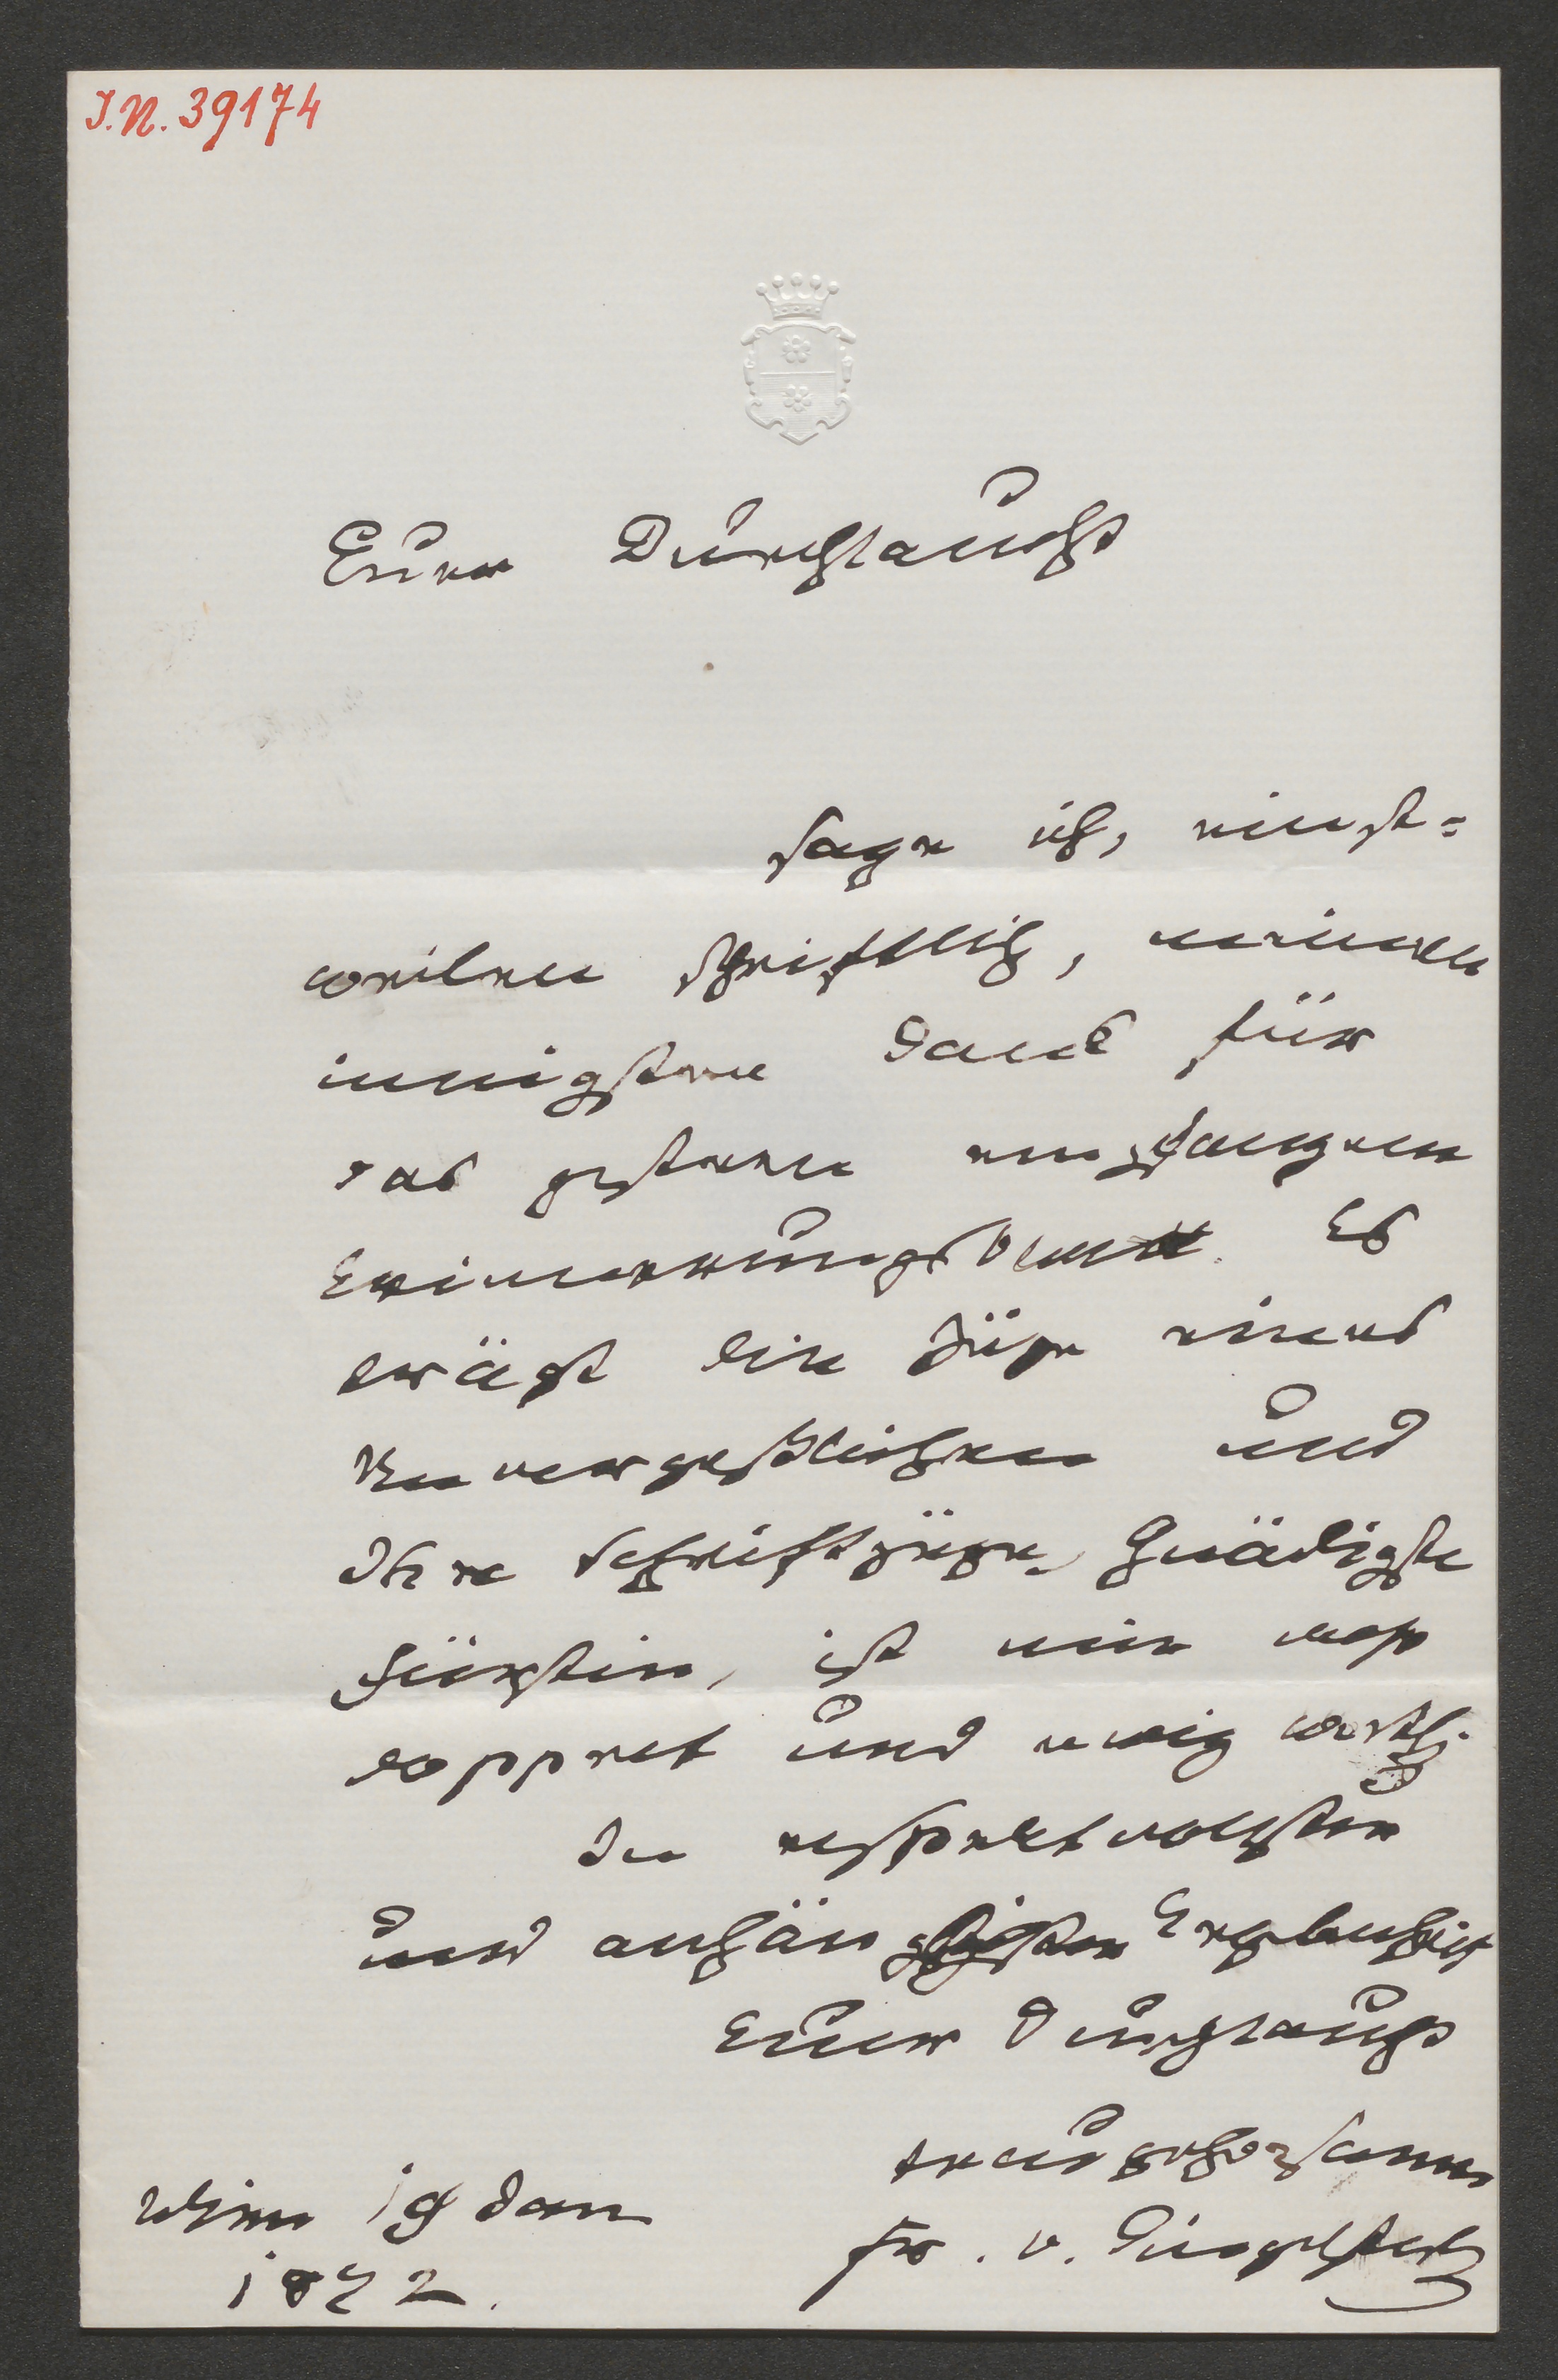 J.N. 39174
Eurer Durchlaucht
sage ich, einst=
weilen schriftlich, meinen
innigsten Dank für
das gestern empfangene
Erinnerungsblatt. Es
trägt die Züge eines
Unvergeßlichen und
Ihre Schriftzüge, Gnädigste
Fürstin, ist mir also
doppelt und ewig werth.
In respektvollster
und anhänglichster Ergebenheit
Eurer Durchlaucht
treugehorsamer
Fr. v. Dingelstedt
Wien 19 Jan
1872.